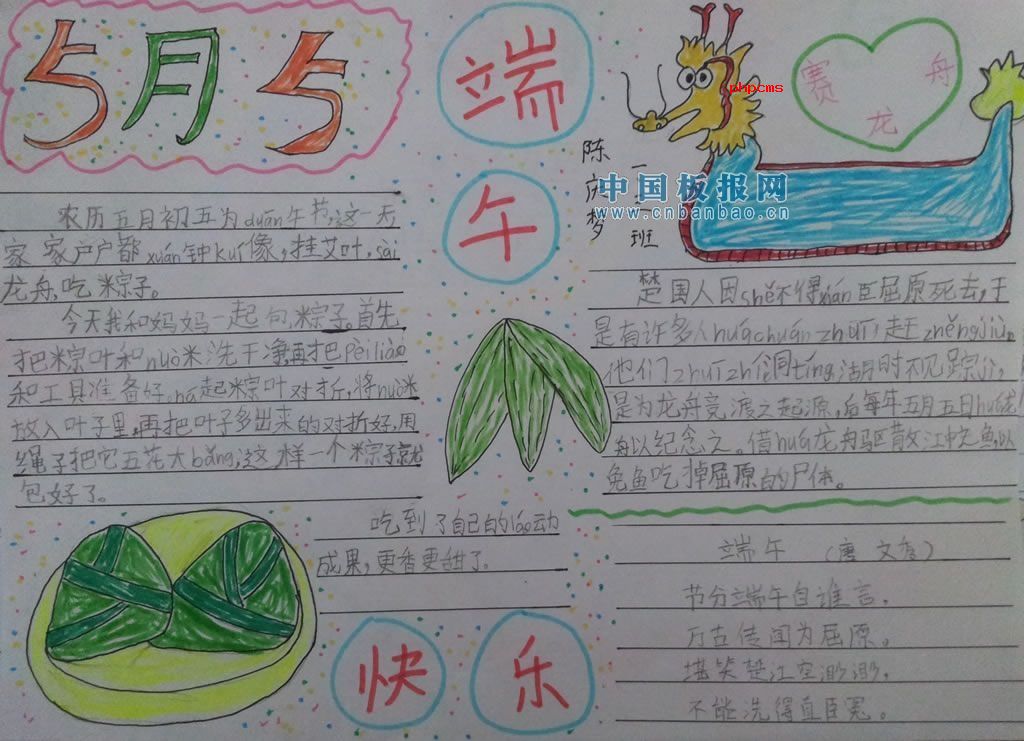 5月5
端
午
赛龙舟
phpcms
陈庆梦
一
班
中国板报网
www.cnbanbao.cn
农历五月初五为duān午节,这一天
家家户户都xuán钟kuí像,挂艾叶,sài
龙舟,吃粽子。
今天我和妈妈一起包粽子。首先
把粽叶和nuò米洗干净再把pèiliào
和工具准备好,ná起粽叶对折,将nuò米
放入叶子里,再把叶子多出来的对折好,用
绳子把它五花大bǎng,这样一个粽子就
包好了。
吃到了自己的láo动
成果,更香更甜了。
楚国人因shě不得xián臣屈原死去,于
是有许多人huáchuánzhuī赶zhěngjiù,
他们zhuīzhì洞tíng湖时不见踪jì,
是为龙舟竞渡之起源,后每年五月五日huá龙
舟以纪念之。借huá龙舟驱散江中之鱼,以
免鱼吃掉屈原的尸体。
端午 (唐 文秀)
节分端午自谁言,
万古传闻为屈原。
堪笑楚江空渺渺,
不能洗得直臣冤。
快
乐